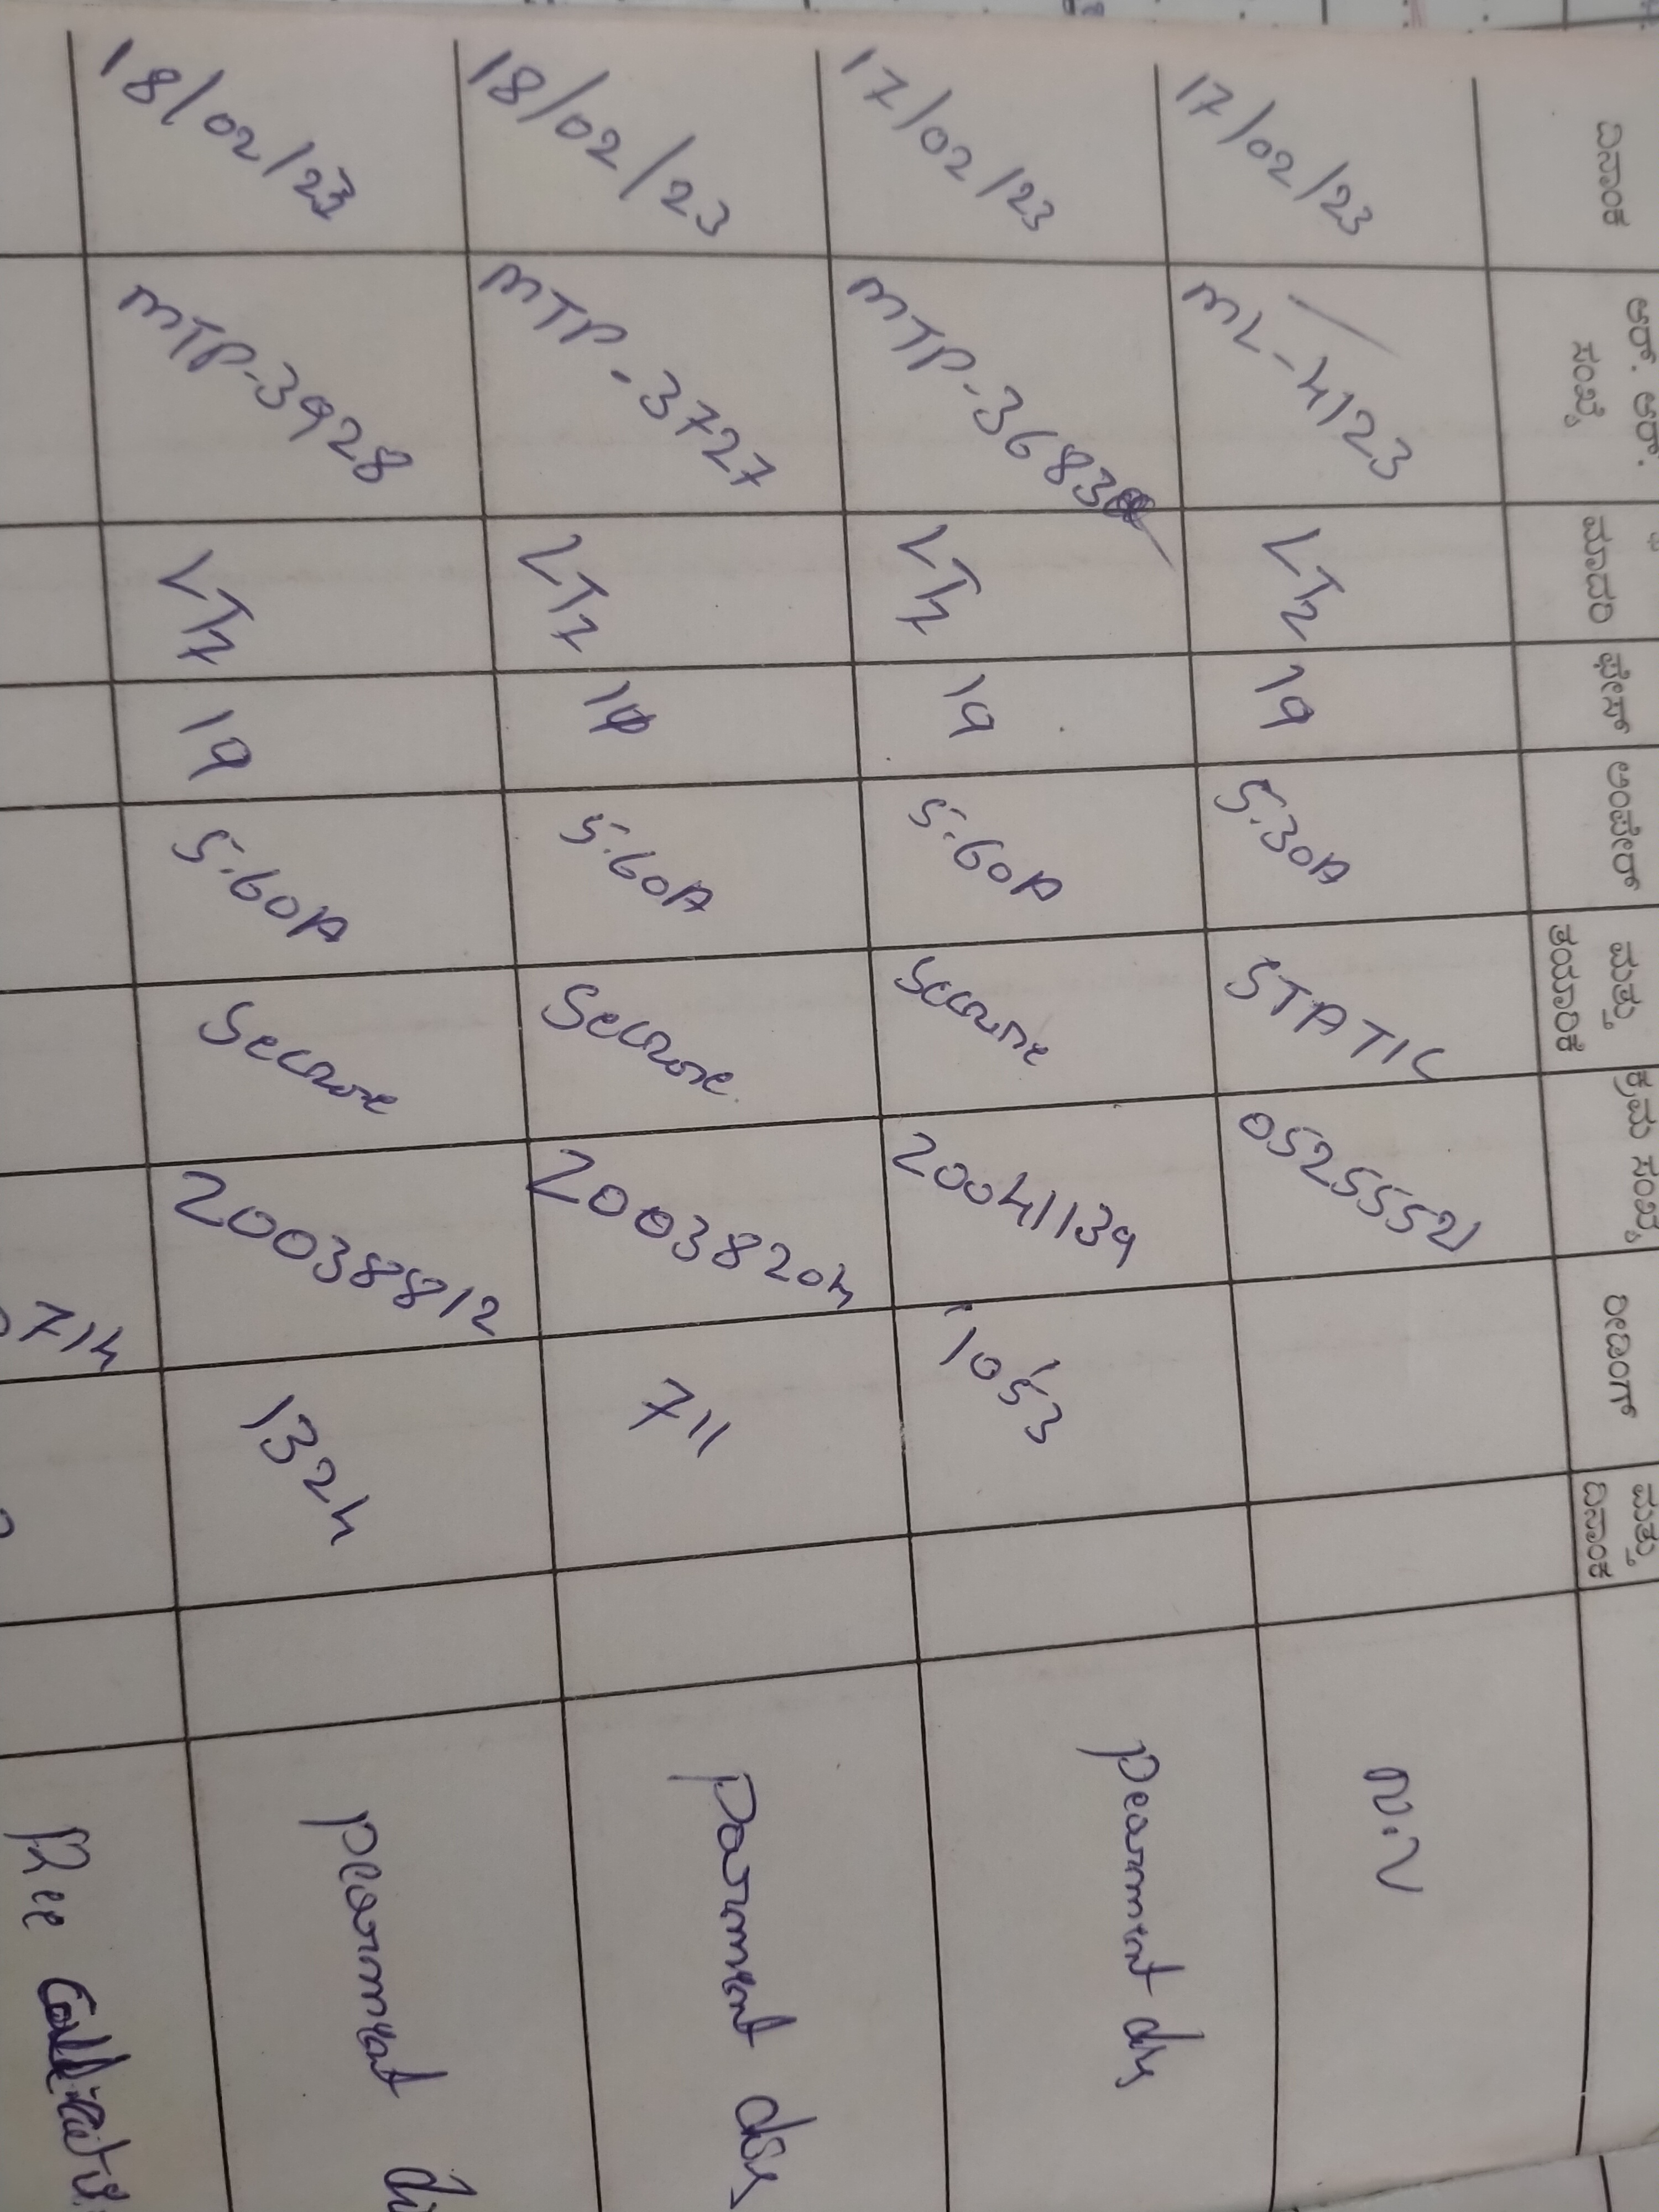 ದಿನಾಂಕ
ಆರ್. ಆರ್. ಸಂಖ್ಯೆ
ಮಾದರಿ
ಫೇಸ್
ಆಂಪೇರ್
ಮತ್ತು ತಯಾರಿಕೆ
ಕ್ರಮ ಸಂಖ್ಯೆ
ರೀಡಿಂಗ್
ಮತ್ತು ದಿನಾಂಕ
17/02/23 ML-4123 LT2 1φ 5-30A STATIC 052555
17/02/23 MTP-3683 LT1 1φ 5-60A Secure 20041139 1053 pearment dis
18/02/23 MTP-3727 LT1 1φ 5-60A Secure 20038204 711 parment dis
18/02/23 MTP-3928 LT1 1φ 5-60A Secure 20038812 1324 pearment
714